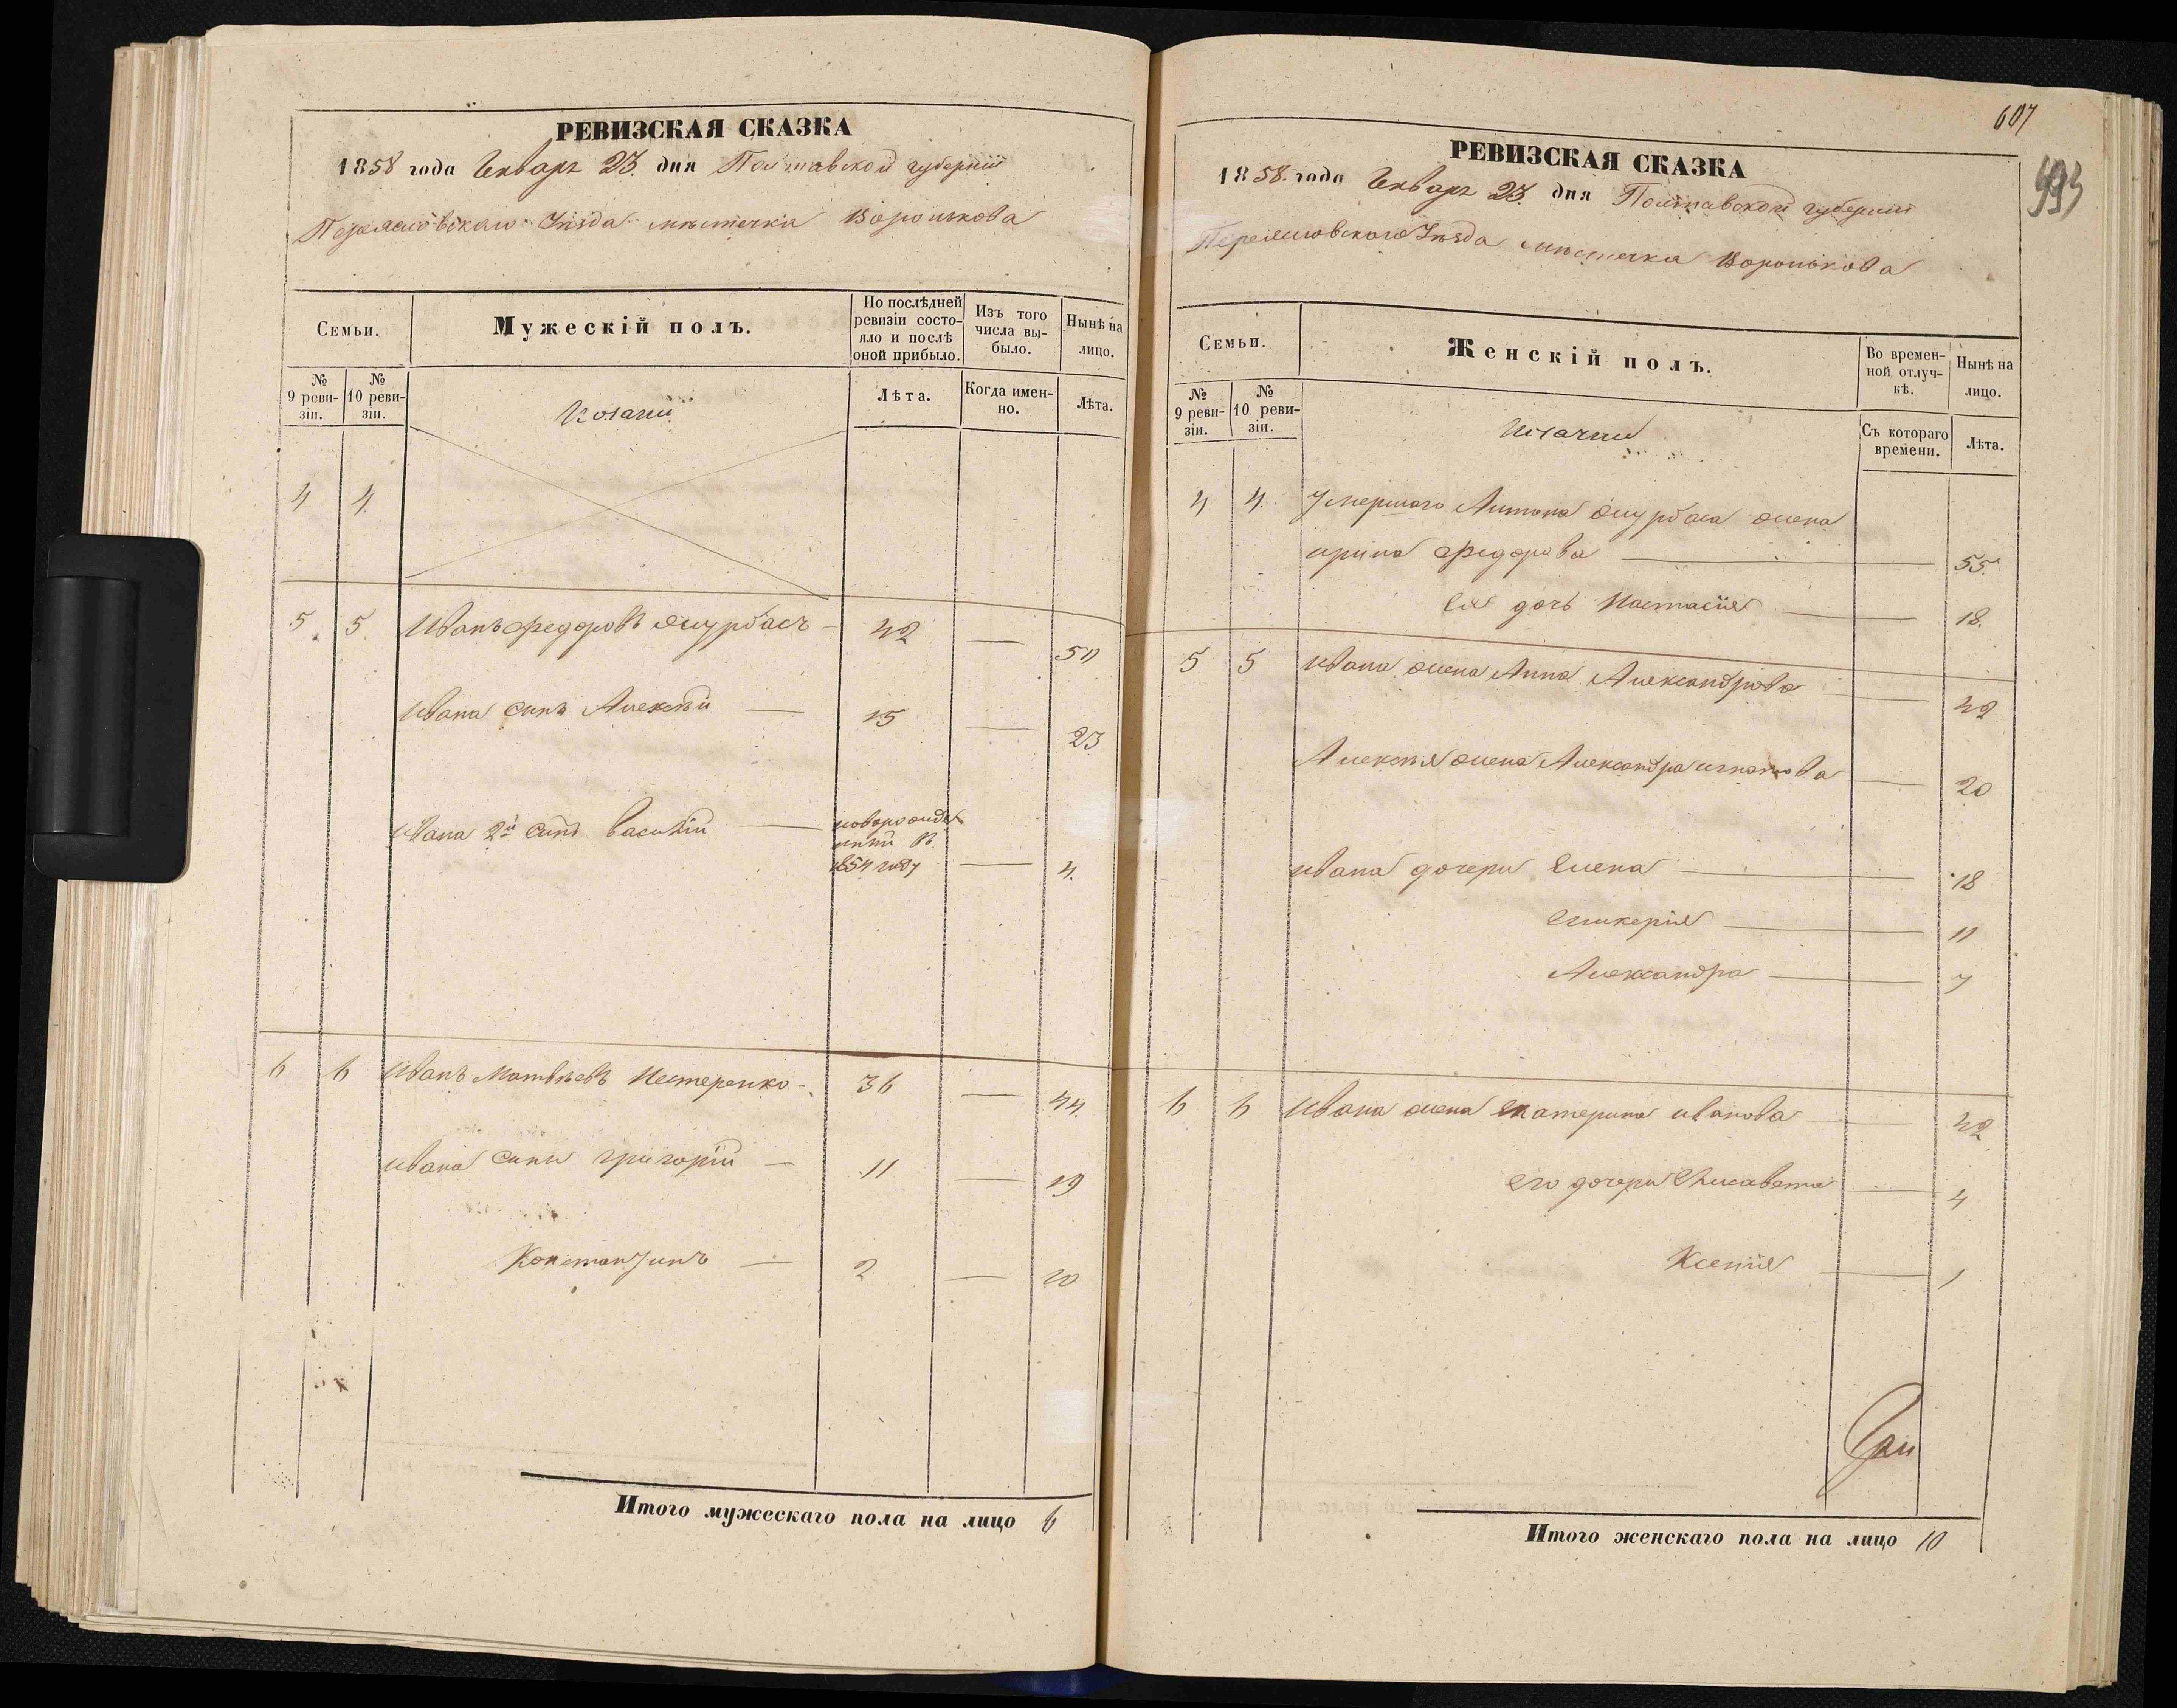 РЕВИЗСКАЯ СКАЗКА
1858 года Генваря 23 дня Полтавской губерніи
Переясловскаго Уѣзда мѣстечка Воронькова
Семьи.
Мужескій полъ.
По послѣдней ревизіи состояло и послѣ оной прибыло.
Изъ того числа выбыло.
Нынѣ на лицо.
№ 9 ревизіи.
№ 10 ревизіи.
Козаки
Лѣта.
Когда именно.
Лѣта.
4 4
5 5 Иванъ Федоровъ Журбасъ 42 — 50
Ивана сынъ Алексѣй — 15 — 23
Ивана 2й сынъ Василій — новорожденный въ 1854 году — 4
6 6 Иванъ Матвѣевъ Нестеренко 36 — 44
Ивана сыны Григорій — 11 — 19
Константинъ — 2 — 10
Итого мужескаго пола на лицо 6
607
593
РЕВИЗСКАЯ СКАЗКА
1858 года Генваря 23 дня Полтавской губерніи
Переясловскаго Уѣзда мѣстечка Воронькова
Семьи.
Женскій полъ.
Во временной отлучкѣ.
Нынѣ на лицо.
№ 9 ревизіи.
№ 10 ревизіи.
Съ котораго времени.
Лѣта.
4 4 Умершаго Антона Журбаса жена
Ирина Федорова — 55
Ея дочь Настасія — 18
5 5 Ивана жена Анна Александрова — 42
Алексѣя жена Александра Игнатова — 20
Ивана дочери Елена — 18
Гликерія — 11
Александра — 7
6 6 Ивана жена Екатерина Иванова — 42
Его дочери Елисавета — 4
Ксенія — 1
Итого женскаго пола на лицо 10